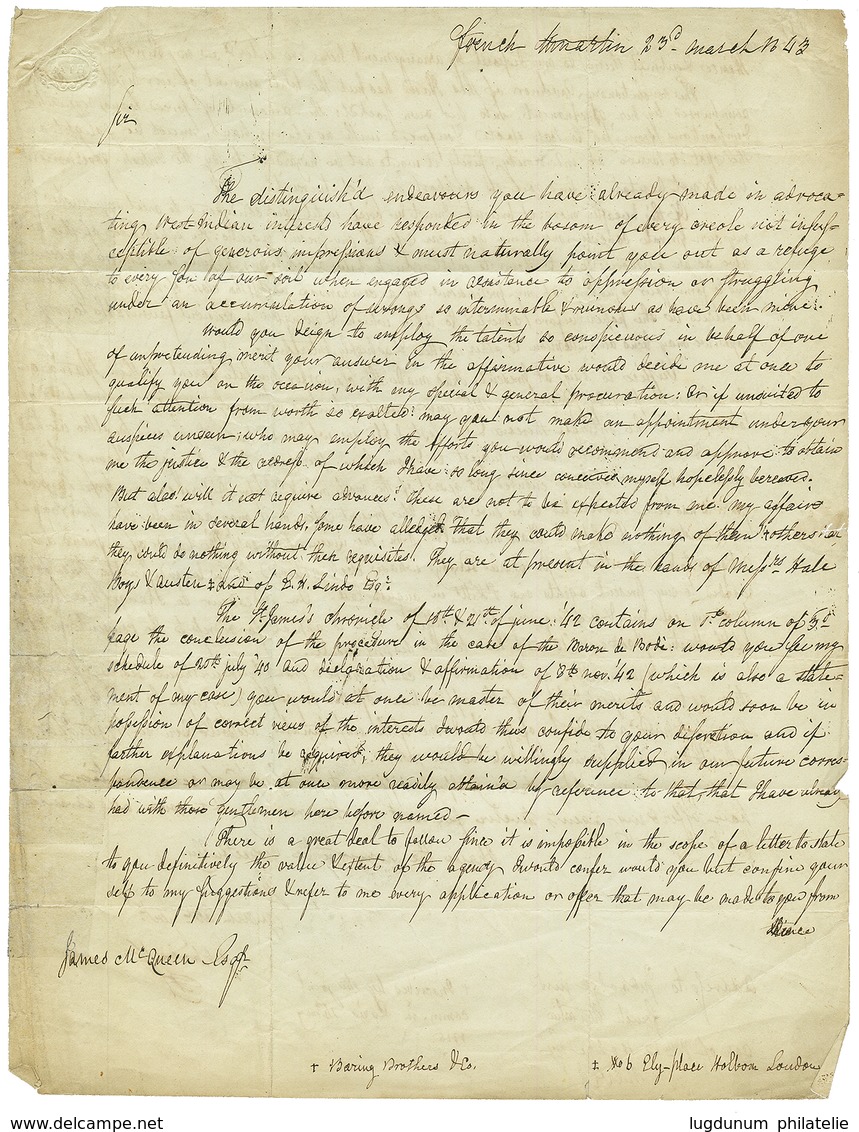 French Smartin 23d March 1843
Sir
The distinguish'd endeavours you have already made in advoca-
ting West Indian interests have responded in the bosom of every creole not insus-
ceptible of generous impressions & must naturally point you out as a refuge
to every son of our soil when engaged in resistance to oppression or struggling
under an accumulation of wrongs so interminable & ruinous as have been mine.
Would you deign to employ the talents so conspicuous in behalf of one
of unpretending merit your answer in the affirmative would decide me at once to
qualify you on the occasion, with my special & general procuration: or if unsuited to
such attention from worth so exalted? may you not make an appointment under your
auspices unseen, who may employ the efforts you would recommend and approve to obtain
me the justice & the redress of which I have so long since conceived myself hopelessly bereaved.
But also! will it not require advances? these are not to be expected from me. my affairs
have been in several hands, some have alledged that they could make nothing of them & others: that
they could do nothing without their requisites. They are at present in the hands of Messrs Hale
Boys & Austen ‡ and of E. H. Lindo Esqr.
The St James's chronicle of 18th & 21st of june '42 contains on 1st column of 3d
page the conclusion of the procedure in the case of the Baron de Bode: would you see my
schedule of 20th july '40 and declaration & affirmation of 8th nov. '42 (which is also a state-
ment of my case) you would at once be master of their merits and would soon be in
possession of correct views of the interests I would thus confide to your discretion and if
farther explanations be required, they would be willingly supplied in our future corres-
pondence or may be at once more readily attain'd by reference to that, that I have already
had with those gentlemen here before named –
There is a great deal to follow since it is impossible in the scope of a letter to state
to you definitively the value & extent of the agency I would confer would you but confine your
self to my suggestions & refer to me every application or offer that may be made to you from
hence
James McQueen Esqr
† Baring Brothers & Co.
‡ No 6 Ely-place Holborn London
www.delcampe.net
lugdunum philatelie